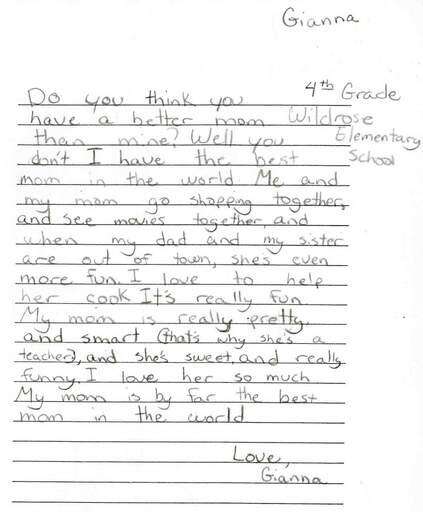 Gianna
4th Grade
Do you think you
have a better mom Wildrose
than mine? Well you Elementary
don't I have the best School
mom in the world Me and
my mom go shopping together,
and see movies together, and
when my dad and my sister
are out of town, she's even
more fun. I love to help
her cook It's really fun.
My mom is really pretty,
and smart (that's why she's a
teacher), and she's sweet, and really
funny. I love her so much
My mom is by far the best
mom in the world
Love,
Gianna